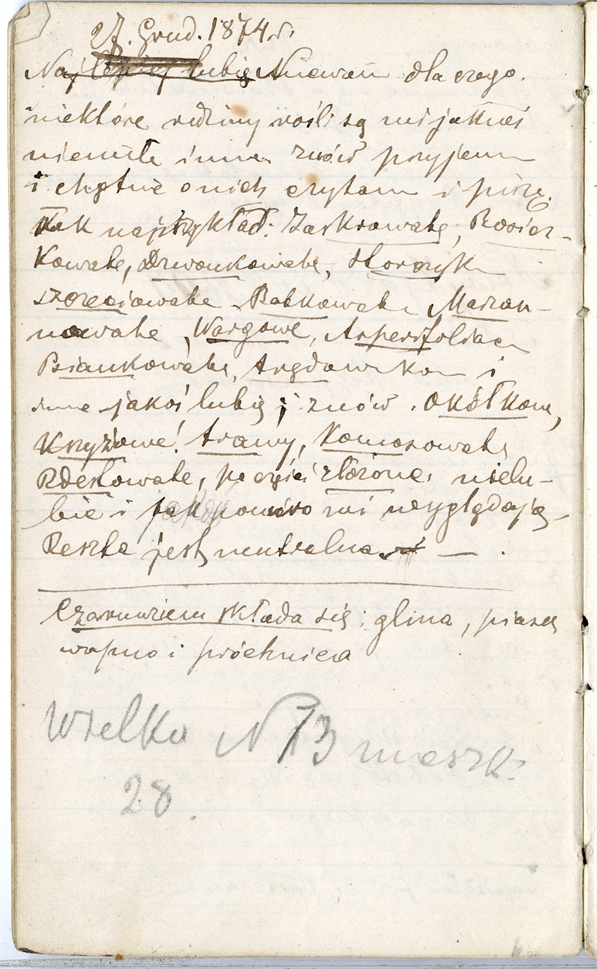 27. Grud. 1874 r.
Najlepiej lubię Niewiem dla czego
niektóre rodziny rośli są mi jakieś
niemiłe inne znów przyjem
i chętnie o nich czytam i piszę.
Tak naprzykład: Jaskrowate,
kowate, Dzwonkowate, Storczyk
szorstkawate Babkowate Marzan-
nowate, Wargowe, Asperifoliae
i
inne jakoś lubię; znów. Okółkow,
Krzyżowe! trawy, Komosowate
Rdestowate, po części złożone, nielu-
bie i jakoś ponuro mi wyglądają
Reszta jest neutralna — .
Czarnoziem składa się: glina, piasek
wapno i próchnica
Wielka N 13 mieszk.
28.